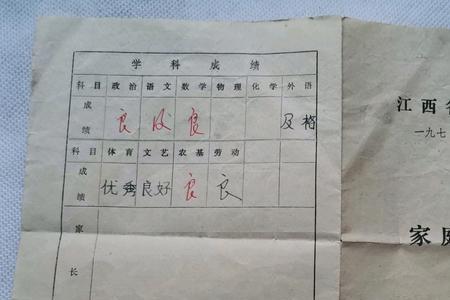 学科成绩
科目 政治 语文 数学 物理 化学 外语
成绩 良 及 良 及格
科目 体育 文艺 农基 劳动
成绩 优秀 良好 良 良
家长
江西
一九七
家庭